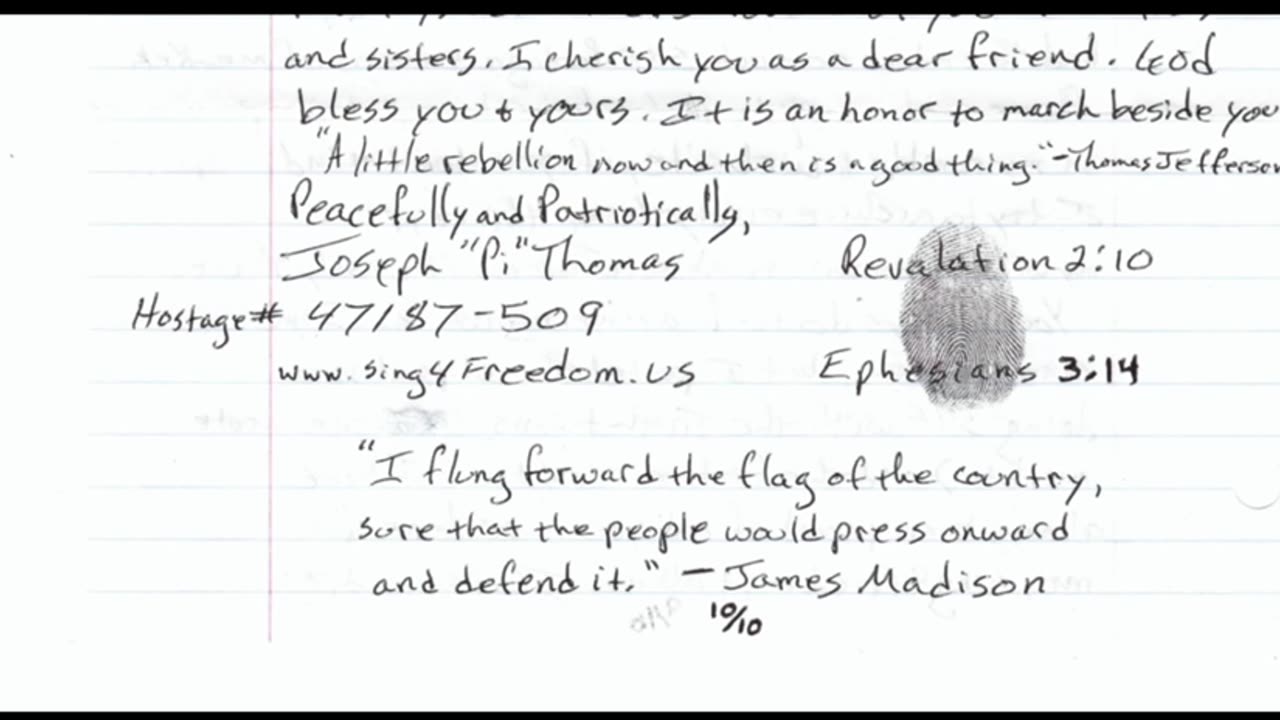 and sisters. I cherish you as a dear friend. God
bless you & yours. It is an honor to march beside you
"A little rebellion now and then is a good thing." - Thomas Jefferson
Peacefully and Patriotically,
Joseph "Pi" Thomas
Revalation 2:10
Hostage# 47187-509
www.sing4Freedom.us
Ephesians 3:14
"I flung forward the flag of the country,
sure that the people would press onward
and defend it." - James Madison
10/10